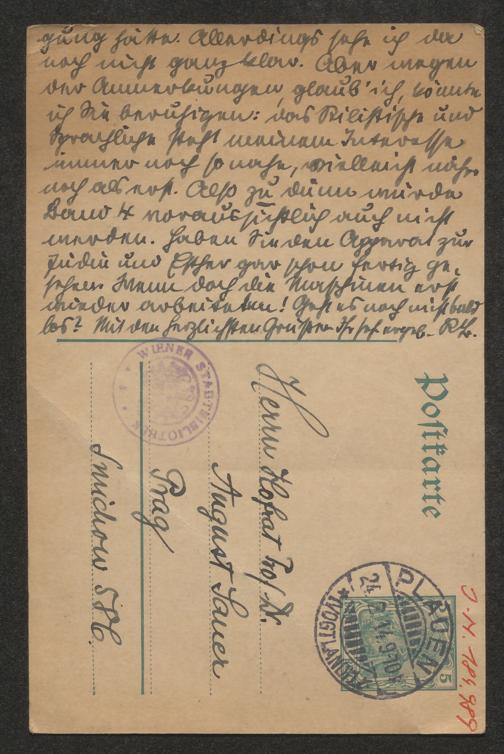 gung hätte. Allerdings sehe ich da
noch nicht ganz klar. Aber wegen
der Anmerkungen, glaub' ich, könnte
ich Sie beruhigen: das Stilistische und
Sprachliche steht meinem Interesse
immer noch so nahe, vielleicht näher
noch als erst. Also zu dünn würde
Band 4 voraussichtlich auch nicht
werden. Haben Sie den Apparat zur
Jüdin und Esther gar schon fertig ge-
sehen? Wenn doch die Maschinen erst
wieder arbeiteten! Geht es noch nicht bald
los? Mit den herzlichsten Grüßen Ihr sehr ergeb.
Postkarte
Herrn Hofrat Prof. Dr.
August Sauer
Prag
Smichow 586.
WIENER STADTBIBLIOTHEK
PLAUEN
(VOGTLAND)
5
J.N. 184.989